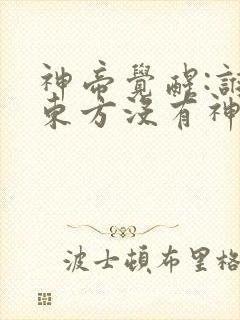 神帝覺醒:誰
東方沒有神
波士頓布里格